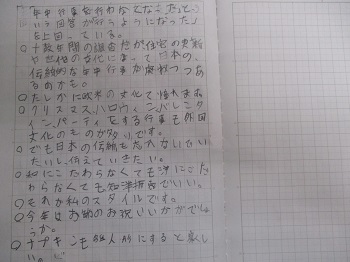 「年中行事を行わなくなった」と
いう回答が「行うようになった」
を上回っている。
○十数年間の過去だが住宅の変化
や世相の変化に よって日本の
伝統的な年中行事が衰退つつ
あるかも。
○たしかに欧米の文化で憧れます
○クリスマス、ハロウィン、バレンタ
イン、パーティをする行事も外国
文化のものが多いです。
○でも日本の伝統も忘れないでい
たいし、伝えていきたい。
○和にこだわらなくても洋にこだ
わらなくても和洋折衷でいい。
○それが私のスタイルです。
○今年はお節のお祝いいかがでしょ
うか。
○ナプキンも 人 にすると楽し
い。